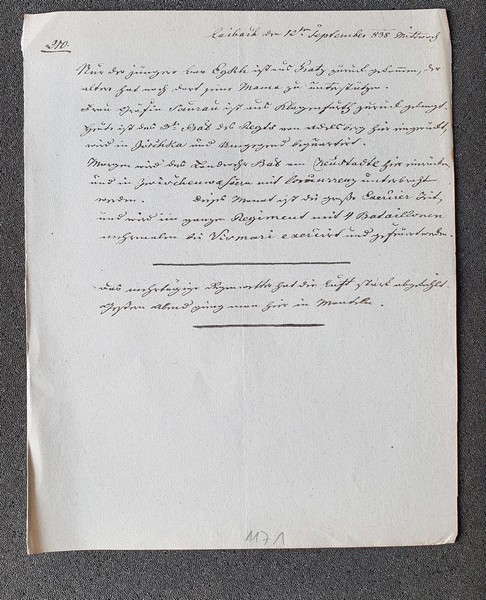 210.
Laibach den 12ten September 838 Mittwoch
Nur der jüngere Bar Egkh ist aus Gratz zurück gekommen, der
ältere hat noch dort seine Mama zu unterstützen.
Frau Gräfin Saurau ist aus Klagenfurth zurück gelangt.
Heute ist das 3te Bat des Regts von Adelsberg hier eingerückt,
wird in Zischka und Umgegend bequartirt.
Morgen wird das Landwehr Bat von Neustadtl hier einrücken
und in Zwischenwässern mit Concurrenz unterbracht
werden. dieses Monat ist die große Exercier Zeit,
und wird im ganzen Regiment mit 4 Bataillonen
mehrmalen bei Vismari exercirt und gefeuert werden.
Das mehrtägige Regenwetter hat die Luft stark abgekühlt.
Gestern Abend ging man hier in Mänteln.
1171